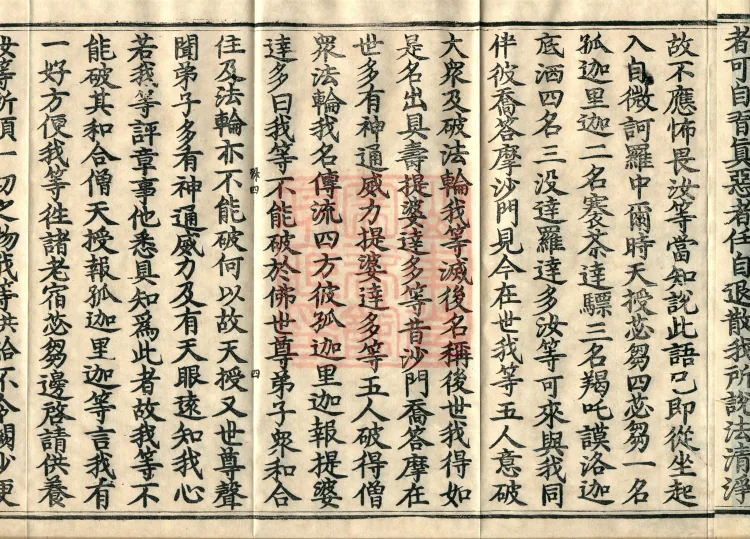 者可自習真惡者任自退散我所説法清淨
故不應怖畏汝等當知説此語已即從坐起
入自微訶羅中爾時天授苾芻四苾芻一名
孤迦里迦二名褰荼達驃三名羯吒謨洛迦
底洒四名三没達羅達多汝等可來與我同
伴彼喬荅摩沙門見今在世我等五人意破
大衆及破法輪我等滅後名稱後世我得如
是名出具壽提婆達多等昔沙門喬荅摩在
世多有神通威力提婆達多等五人破得僧
衆法輪我名傳流四方彼孤迦里迦報提婆
達多曰我等不能破於佛世尊弟子衆和合
四
住及法輪亦不能破何以故天授又世尊聲
聞弟子多有神通威力及有天眼遠知我心
若我等評章事他悉具知爲此者故我等不
能破其和合僧天授報孤迦里迦等言我有
一好方便我等徃諸老宿苾芻邊啓請供養
汝等所須一切之物我等供給不令闕少便